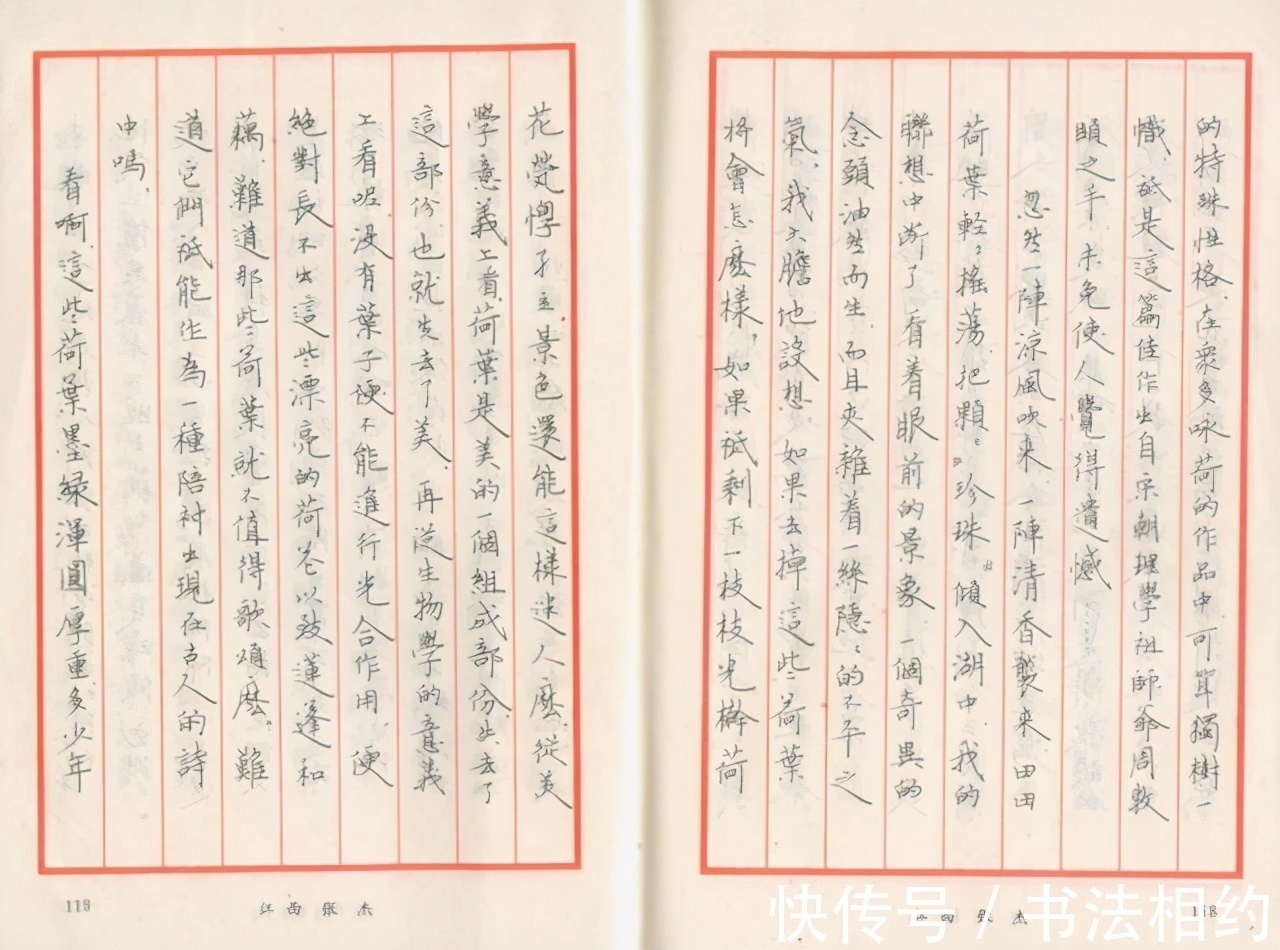 的特殊性格.在衆多咏荷的作品中可單獨樹一
幟.祇是這篇佳作出自宋朝理學祖師爺周敦
頤之手.未免使人覺得遺憾
忽然一陣涼風吹来.一陣清香襲来.田田
荷葉輕〻摇蕩.把顆〻珍珠傾入湖中.我的
聯想中断了.看着眼前的景象.一個奇異的
念頭油然而生.而且夾雜着一絲隱〻的不平之
氣.我大膽地設想.如果去掉這些荷葉
将會怎麽樣.如果祇剩下一枝枝光幹荷
花.景色還能這樣迷人麽.從美
學意義上看.荷葉是美的一個組成部份.失去了
這部份也就失去了美.再從生物學的意義
上看呢.没有葉子便不能進行光合作用.便
絶對長不出這些漂亮的荷花以致蓮蓬和
藕.難道那些荷葉就不值得歌頌麽.難
道它們祇能作為一種陪衬出現在古人的詩
中嗎.
看啊.這些荷葉墨緑渾圓厚重多少年
119
江西張杰
江西張杰
118
快传号 / 书法相约